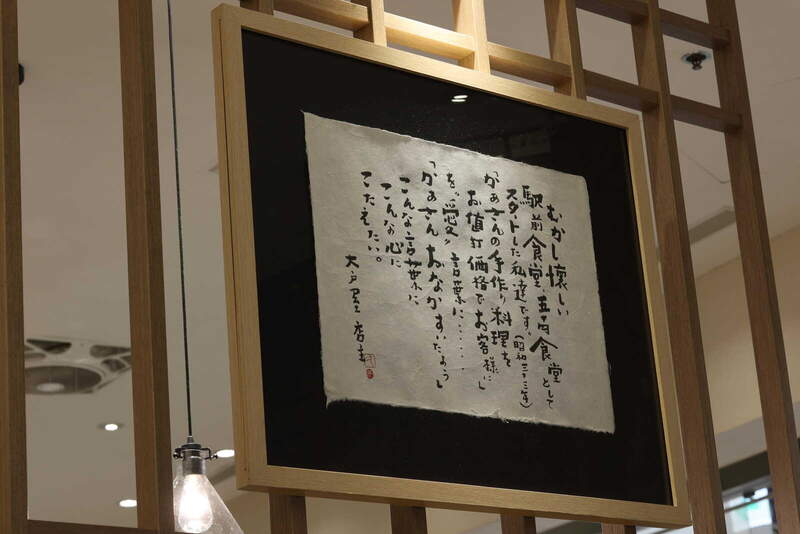 むかし懐しい
駅前食堂、五百食堂として
スタートした私達です。(昭和三十三年)
「かあさんの手作り料理を
お値打価格でお客様に」
を〝愛〟言葉に……
「かあさん おなかすいたよう」
こんな言葉に
こんな心に
こたえたい。
大戸屋 店主